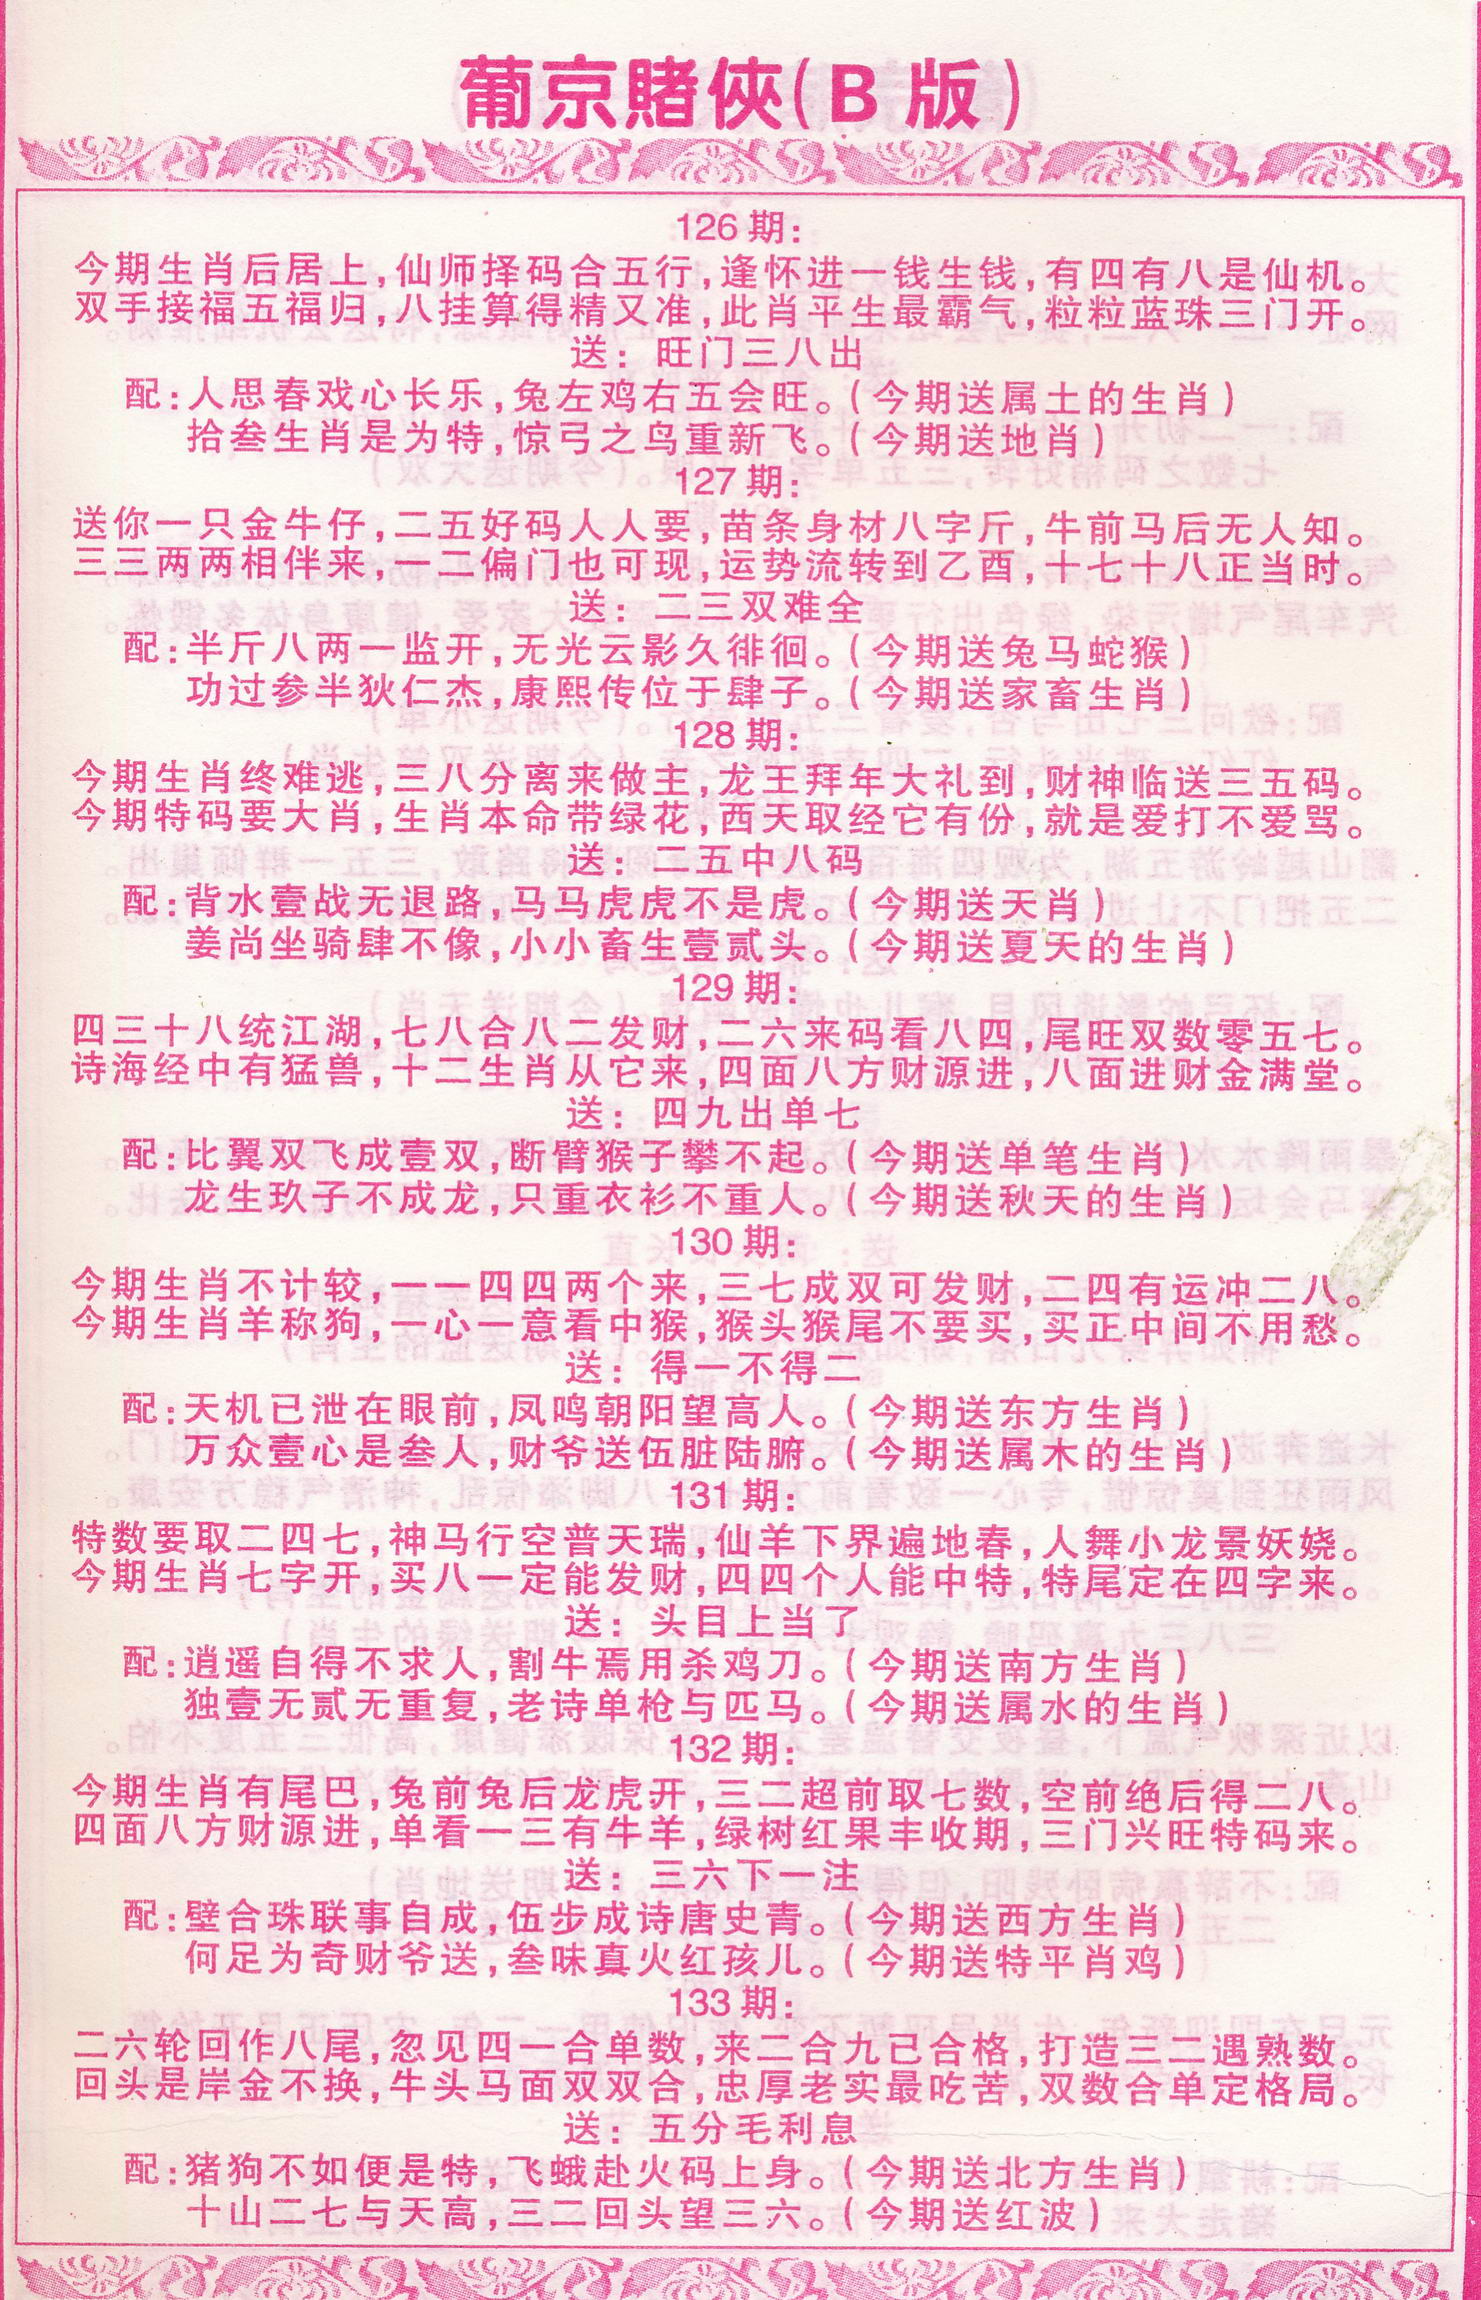 葡京賭俠(B 版)
126期:
今期生肖后居上,仙师择码合五行,逢怀进一钱生钱,有四有八是仙机。
双手接福五福归,八挂算得精又准,此肖平生最霸气,粒粒蓝珠三门开。
送: 旺门三八出
配:人思春戏心长乐,兔左鸡右五会旺。(今期送属土的生肖)
拾叁生肖是为特,惊弓之鸟重新飞。(今期送地肖)
127期:
送你一只金牛仔,二五好码人人要,苗条身材八字斤,牛前马后无人知。
三三两两相伴来,一二偏门也可现,运势流转到乙酉,十七十八正当时。
送: 二三双难全
配:半斤八两一监开,无光云影久徘徊。(今期送兔马蛇猴)
功过参半狄仁杰,康熙传位于肆子。(今期送家畜生肖)
128期:
今期生肖终难逃,三八分离来做主,龙王拜年大礼到,财神临送三五码。
今期特码要大肖,生肖本命带绿花,西天取经它有份,就是爱打不爱骂。
送: 二五中八码
配:背水壹战无退路,马马虎虎不是虎。(今期送天肖)
姜尚坐骑肆不像,小小畜生壹贰头。(今期送夏天的生肖)
129期:
四三十八统江湖,七八合八二发财,二六来码看八四,尾旺双数零五七。
诗海经中有猛兽,十二生肖从它来,四面八方财源进,八面进财金满堂。
送: 四九出单七
配:比翼双飞成壹双,断臂猴子攀不起。(今期送单笔生肖)
龙生玖子不成龙,只重衣衫不重人。(今期送秋天的生肖)
130期:
今期生肖不计较,一一四四两个来,三七成双可发财,二四有运冲二八。
今期生肖羊称狗,一心一意看中猴,猴头猴尾不要买,买正中间不用愁。
送: 得一不得二
配:天机已泄在眼前,凤鸣朝阳望高人。(今期送东方生肖)
万众壹心是叁人,财爷送伍脏陆腑。(今期送属木的生肖)
131期:
特数要取二四七,神马行空普天瑞,仙羊下界遍地春,人舞小龙景妖娆。
今期生肖七字开,买八一定能发财,四四个人能中特,特尾定在四字来。
送: 头目上当了
配:逍遥自得不求人,割牛焉用杀鸡刀。(今期送南方生肖)
独壹无贰无重复,老诗单枪与匹马。(今期送属水的生肖)
132期:
今期生肖有尾巴,兔前兔后龙虎开,三二超前取七数,空前绝后得二八。
四面八方财源进,单看一三有牛羊,绿树红果丰收期,三门兴旺特码来。
送: 三六下一注
配:壁合珠联事自成,伍步成诗唐史青。(今期送西方生肖)
何足为奇财爷送,叁味真火红孩儿。(今期送特平肖鸡)
133期:
二六轮回作八尾,忽见四一合单数,来二合九已合格,打造三二遇熟数。
回头是岸金不换,牛头马面双双合,忠厚老实最吃苦,双数合单定格局。
送: 五分毛利息
配:猪狗不如便是特,飞蛾赴火码上身。(今期送北方生肖)
十山二七与天高,三二回头望三六。(今期送红波)